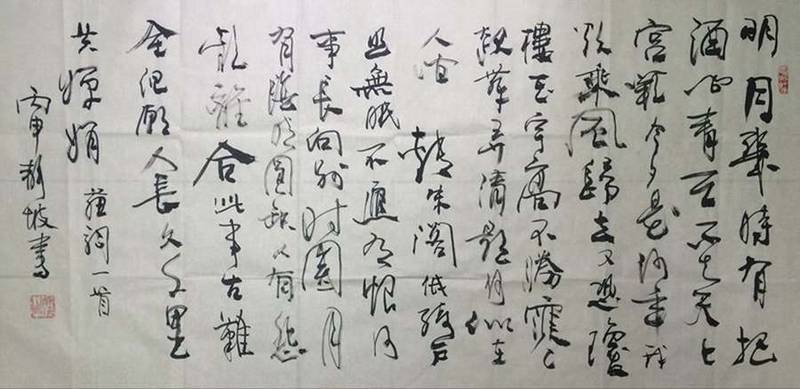 明月幾時有把
酒问青天不知天上
宫阙今夕是何年我
欲乘風歸去又恐瓊
樓玉宇高不勝寒
起舞弄清影何似在
人间 轉朱阁低绮户
照無眠不應有恨何
事長向别时圓月
有陰晴圓缺人有悲
歡離合此事古難
全但願人長久千里
共嬋娟 蘇詞一首
丙申 坡書